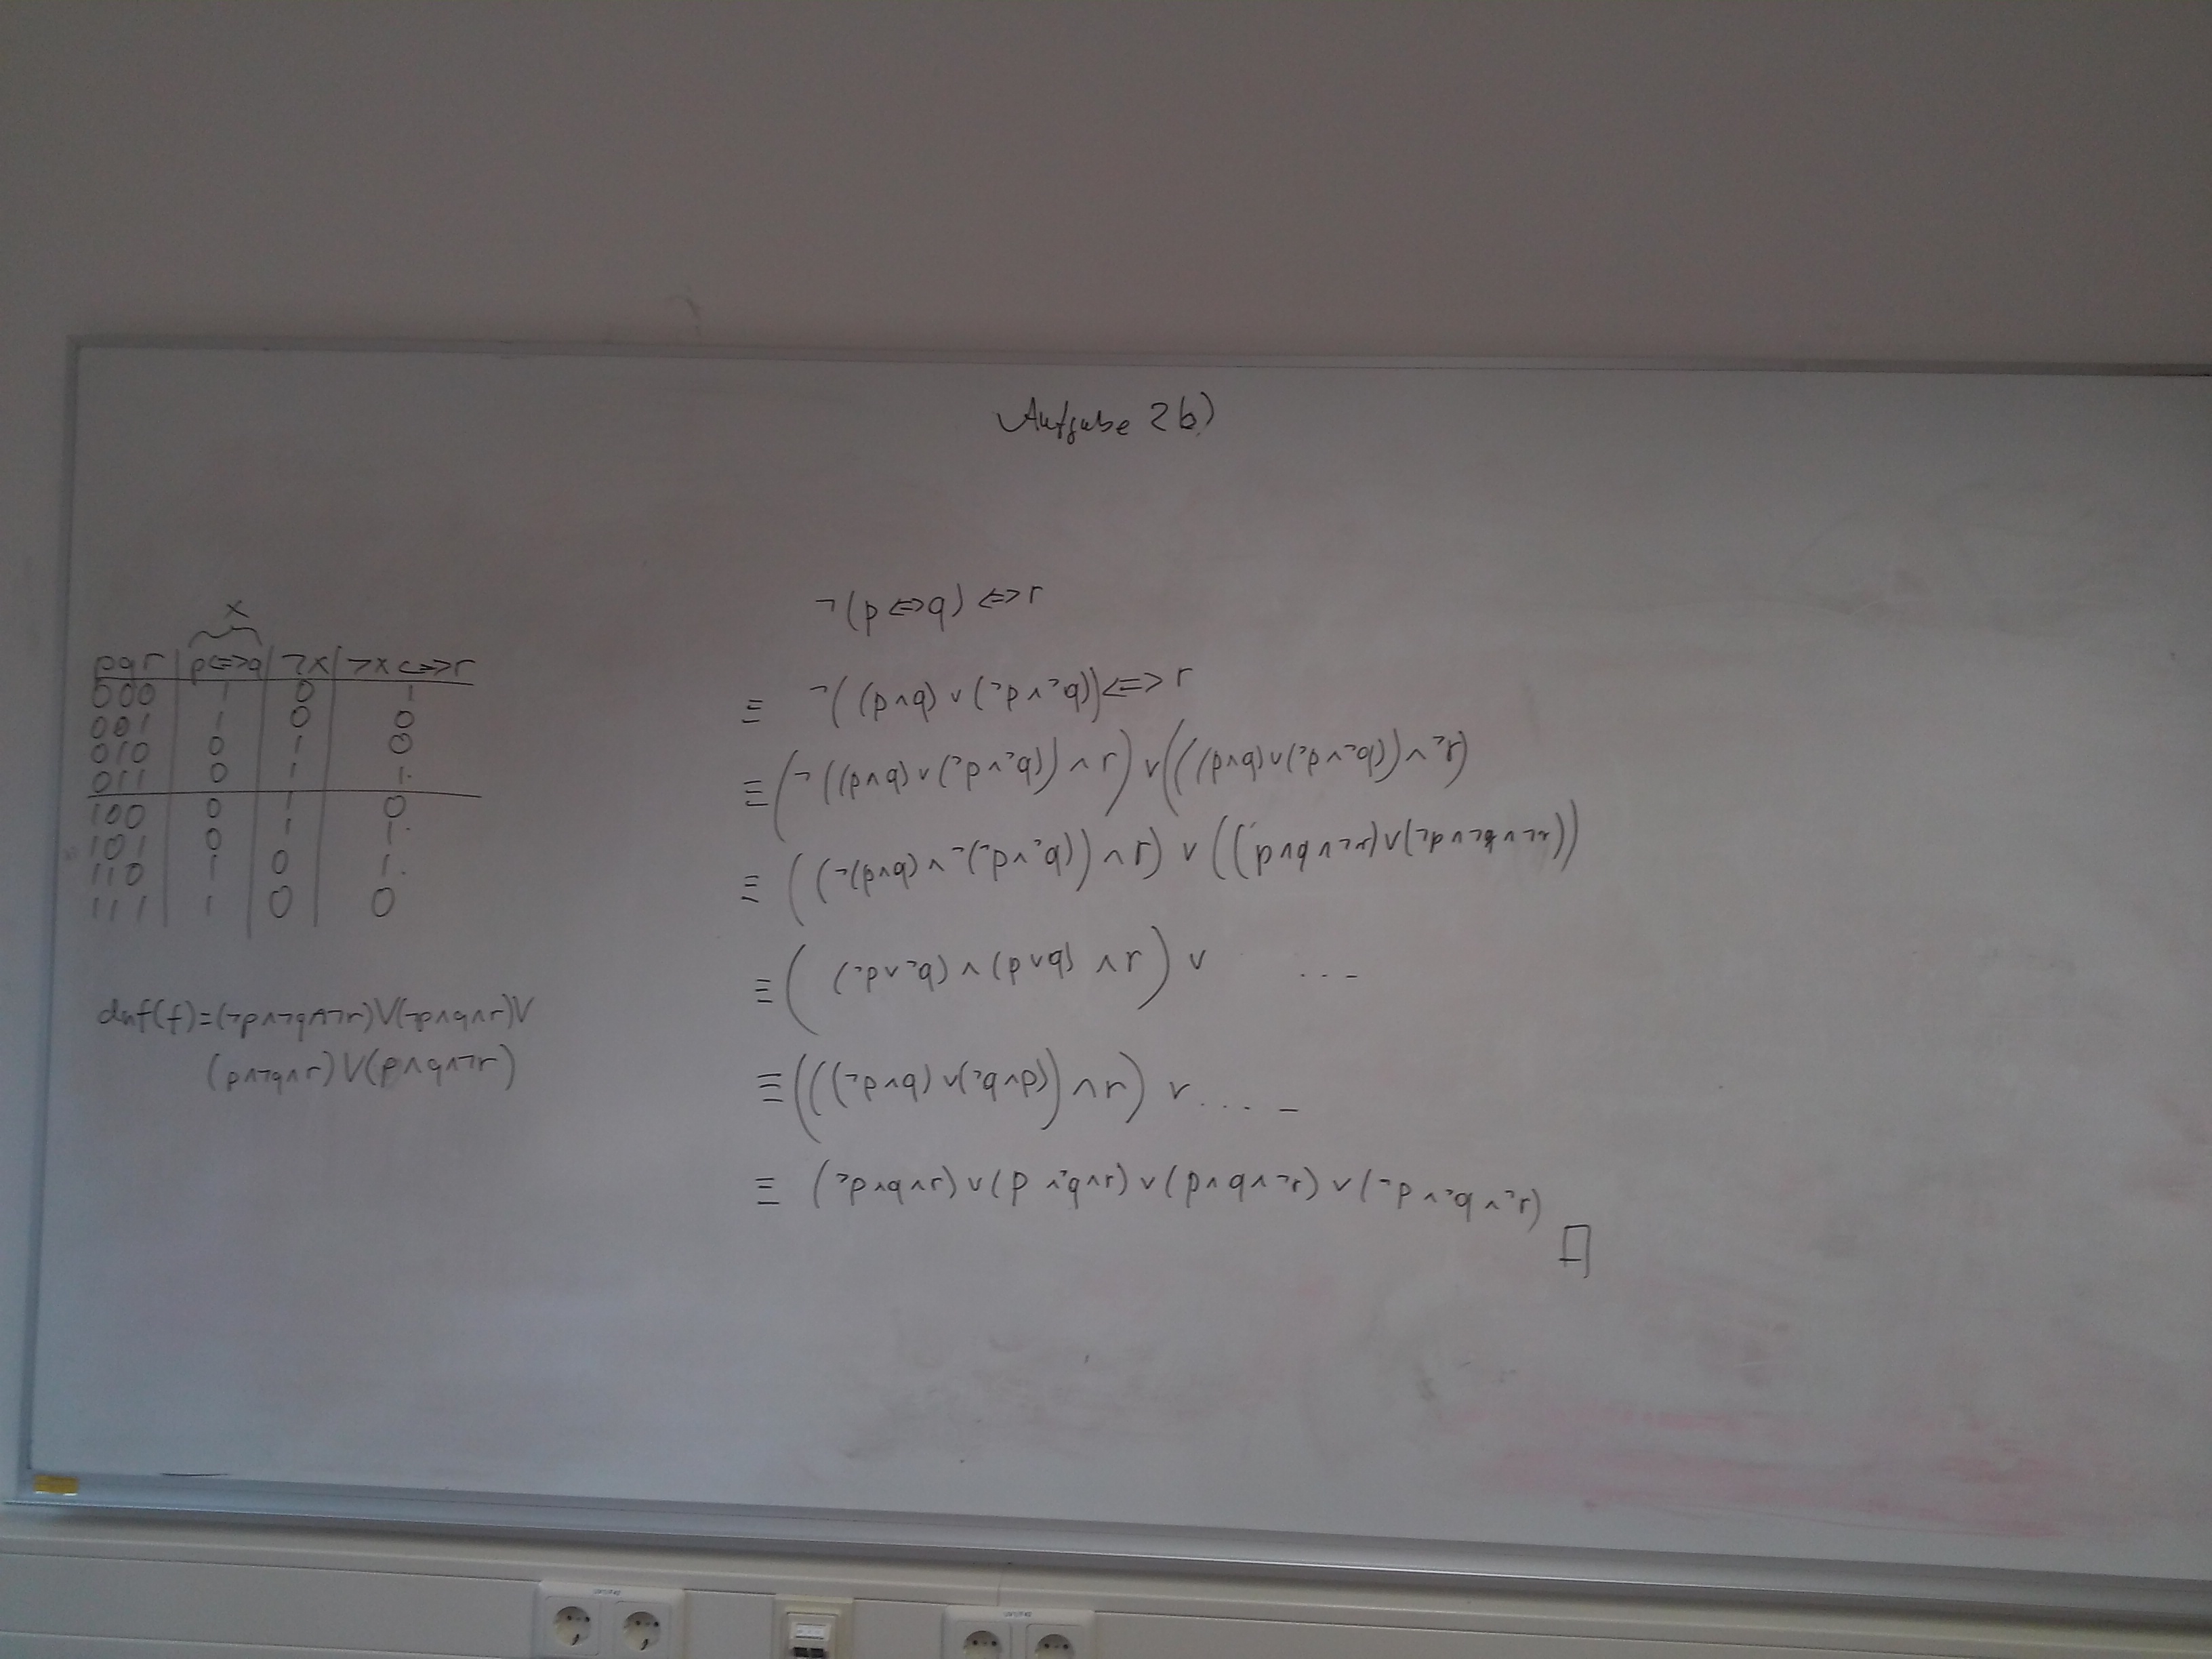 Aufgabe 2b)
x
pqr | p<=>q | ¬x | ¬x <=> r
000 | 1 | 0 | 1
001 | 1 | 0 | 0
010 | 0 | 1 | 0
011 | 0 | 1 | 1.
100 | 0 | 1 | 0
101 | 0 | 1 | 1.
110 | 1 | 0 | 1.
111 | 1 | 0 | 0
dnf(f)=(¬p∧¬q∧¬r)∨(¬p∧q∧r)∨
(p∧¬q∧r)∨(p∧q∧¬r)
¬(p<=>q) <=> r
≡ ¬((p∧q)∨(¬p∧¬q))<=> r
≡ (¬((p∧q)∨(¬p∧¬q))∧r)∨(((p∧q)∨(¬p∧¬q))∧¬r)
≡ ((¬(p∧q)∧¬(¬p∧¬q))∧r)∨((p∧q∧¬r)∨(¬p∧¬q∧¬r))
≡ ((¬p∨¬q)∧(p∨q)∧r)∨ ...
≡ (((¬p∧q)∨(¬q∧p))∧r)∨ ....
≡ (¬p∧q∧r)∨(p∧¬q∧r)∨(p∧q∧¬r)∨(¬p∧¬q∧¬r)
□